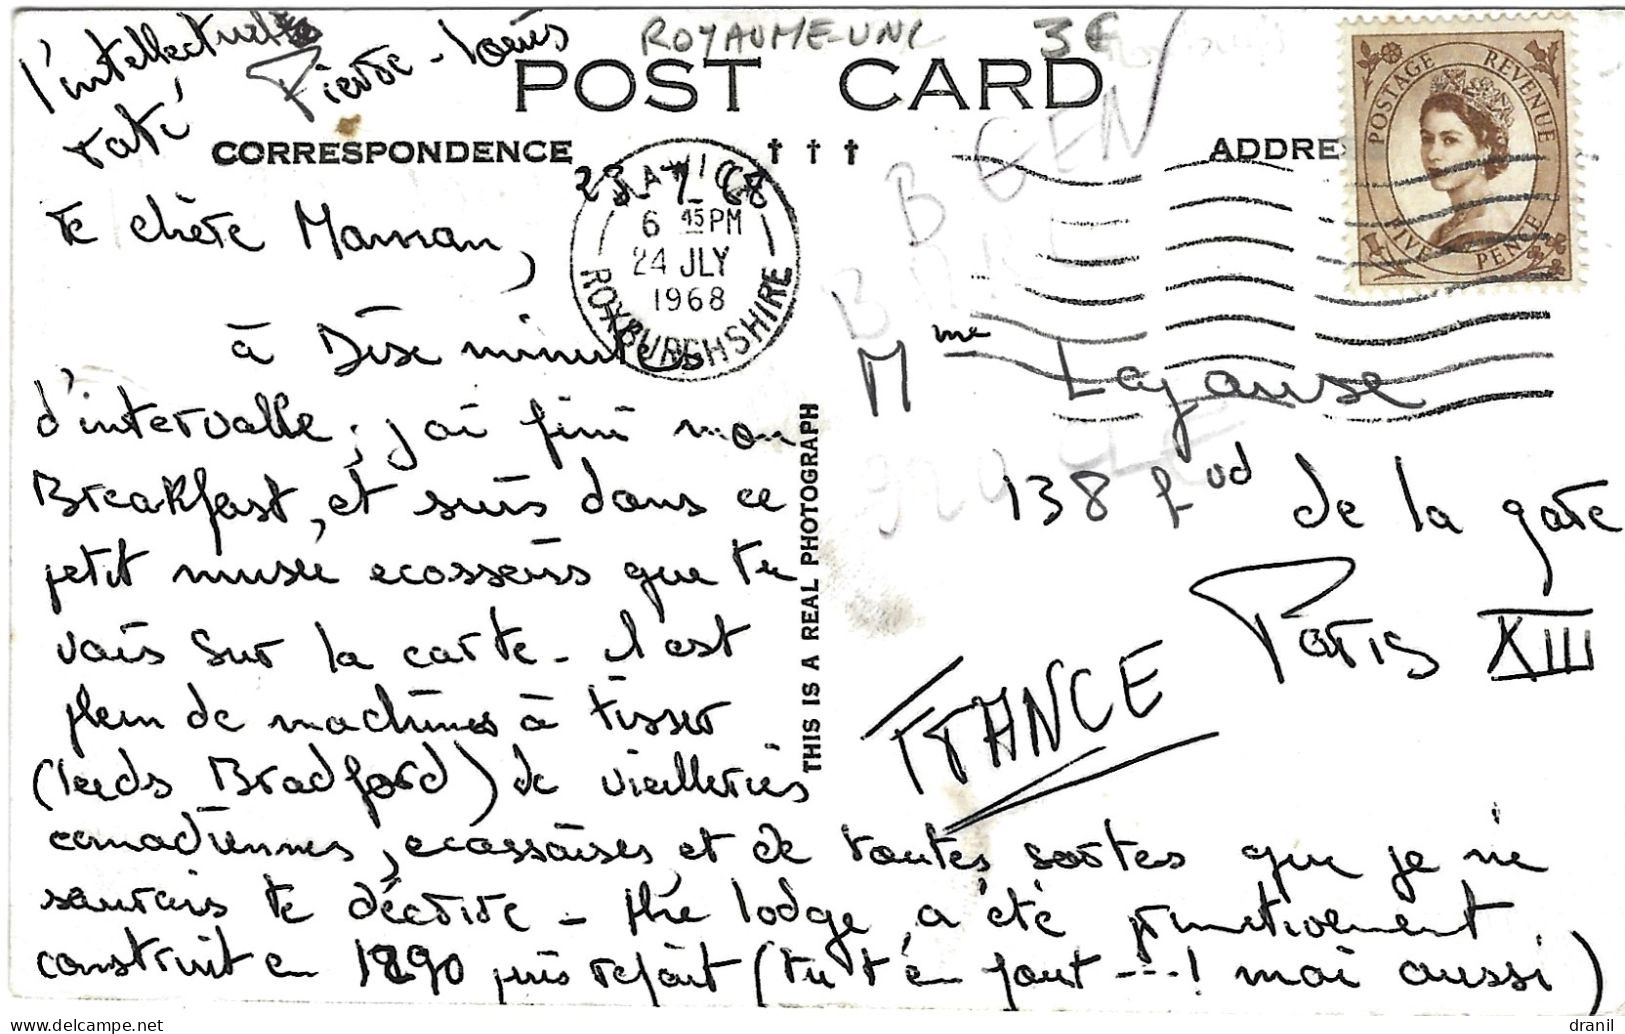 l'intellectuel
raté
Pierre-Louis
ROYAUME-UNI 3€
POST CARD
CORRESPONDENCE
ADDRE
POSTAGE REVENUE
FIVE PENCE
23 7 68
HAWICK
6 45 PM
24 JLY
1968
ROXBURGHSHIRE
Te chère Maman,
à Dise minutes
d'intervalle, j'ai fini mon
Breakfast, et suis dans ce
petit musée ecossais que tu
vois sur la carte - il est
plein de machines à tisser
(Leeds Bradford) de vieilleries
canadiennes, ecossaises et de toutes sortes que je ne
saurais te décrire - the lodge a été primitivement
construit en 1890 puis refait (tu t'en fout ---! moi aussi)
THIS IS A REAL PHOTOGRAPH
Mme Layause
138 de la gare
Paris XIII
FRANCE
dranil
delcampe.net